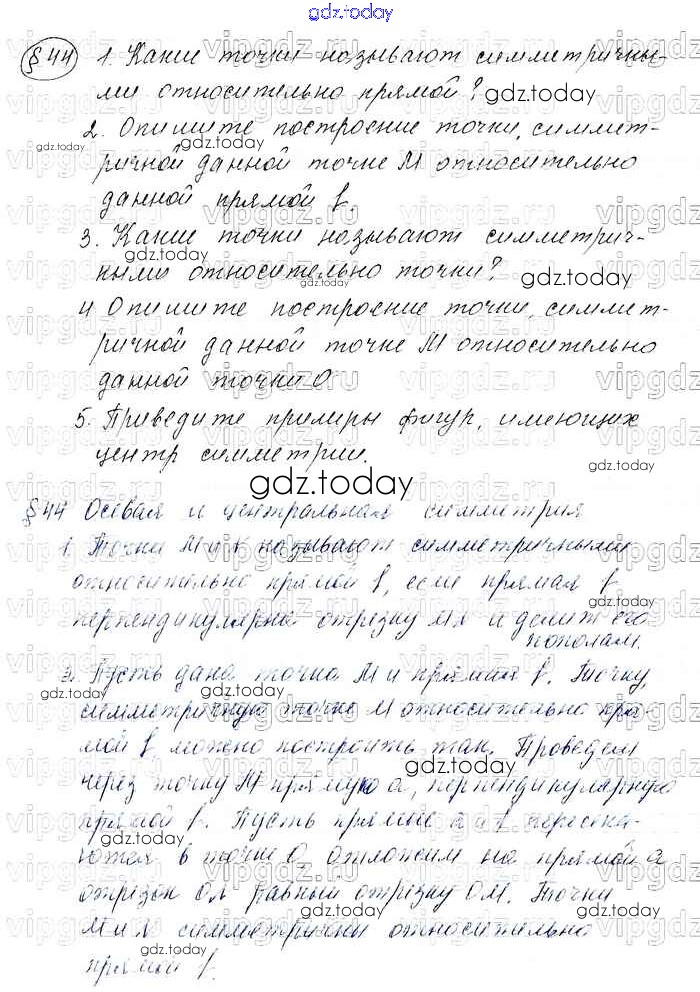 gdz.today
§ 44 1. Какие точки называют симметричны-
ми относительно прямой? gdz.today
2. Опишите построение точки, симмет-
ричной данной точке М относительно
данной прямой l.
3. Какие точки называют симметрич-
ными относительно точки? gdz.today
4 Опишите построение точки, симмет-
ричной данной точке М относительно
данной точки О
5. Приведите примеры фигур, имеющих
центр симметрии.
gdz.today
§44 Осевая и центральная симметрия
1. Точки М и К называют симметричными
относительно прямой l, если прямая l
перпендикулярна отрезку МК и делит его
пополам.
2. Пусть дана точка М и прямая l. Точку,
симметричную точке М относительно пря-
мой l можно построить так. Проведем
через точку М прямую а, перпендикулярную
прямой l. Пусть прямые а и l пересека-
ются в точке О отложим на прямой а
отрезок равный отрезку ОМ. Точки
М и симметричны относительно
прямой l.